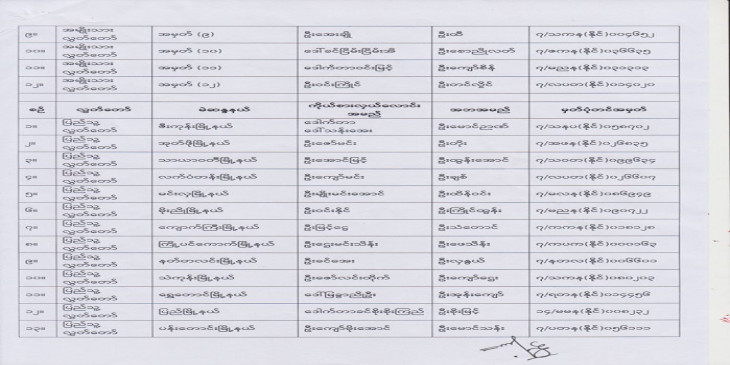 ၉။ အမျိုးသား လွှတ်တော် အမှတ် (၉) ဦးအေးချို ဦးထီ ၇/သကန(နိုင်)၀၀၄၆၅၂
၁၀။ အမျိုးသား လွှတ်တော် အမှတ် (၁၀) ဒေါ်ခင်ငြိမ်းငြိမ်းအိ ဦးစောညိုလတ် ၇/ဇကန(နိုင်)၀၃၆၆၃၅
၁၁။ အမျိုးသား လွှတ်တော် အမှတ် (၁၁) ဒေါက်တာဝင်းမြင့် ဦးကျော်စိန် ၇/မညန(နိုင်)၀၃၁၃၁၃
၁၂။ အမျိုးသား လွှတ်တော် အမှတ် (၁၂) ဦးဝင်းကြိုင် ဦးတင်လှိုင် ၇/လပတ(နိုင်)၀၁၄၀၂၀
စဉ် လွှတ်တော် မဲဆန္ဒနယ် ကိုယ်စားလှယ်လောင်း အမည် အဘအမည် မှတ်ပုံတင်အမှတ်
၁။ ပြည်သူ့ လွှတ်တော် ဇီးကုန်းမြို့နယ် ဒေါက်တာ ဒေါ်သန်းအေး ဦးမောင်ညဏ် ၇/သနပ(နိုင်)၀၅၈၇၀၂
၂။ ပြည်သူ့ လွှတ်တော် အုတ်ဖိုမြို့နယ် ဦးဇော်မင်း ဦးတိုး ၇/အဖန(နိုင်)၀၂၆၈၃၅
၃။ ပြည်သူ့ လွှတ်တော် သာယာဝတီမြို့နယ် ဦးအောင်မြင့် ဦးထွန်းအောင် ၇/သဝတ(နိုင်)၀၉၉၆၃၄
၄။ ပြည်သူ့ လွှတ်တော် လက်ပံတန်းမြို့နယ် ဦးကျော်မင်း ဦးချစ် ၇/လပတ(နိုင်)၀၂၆၆၀၇
၅။ ပြည်သူ့ လွှတ်တော် မင်းလှမြို့နယ် ဦးမျိုးမင်းအောင် ဦးထိန်ဝင်း ၇/မလန(နိုင်)၀၈၆၉၄၉
၆။ ပြည်သူ့ လွှတ်တော် မိုးညိုမြို့နယ် ဦးဝင်းနိုင် ဦးကြိုင်ထွန်း ၇/မညန(နိုင်)၀၉၀၇၂၂
၇။ ပြည်သူ့ လွှတ်တော် ကျောက်ကြီးမြို့နယ် ဦးမြင့်ငွေ ဦးသံတောင် ၇/ကကန(နိုင်)၀၁၈၁၂၈
၈။ ပြည်သူ့ လွှတ်တော် ကြို့ပင်ကောက်မြို့နယ် ဦးဌေးမင်းသိန်း ဦးဖေသိန်း ၇/ကပက(နိုင်)၀၀၀၁၆၃
၉။ ပြည်သူ့ လွှတ်တော် နတ်တလင်းမြို့နယ် ဦးခင်အေး ဦးလှနွယ် ၇/နတလ(နိုင်)၀၀၆၆၀၁
၁၀။ ပြည်သူ့ လွှတ်တော် သဲကုန်းမြို့နယ် ဦးဇော်လင်းထိုက် ဦးကျော်ဌေး ၇/သကန(နိုင်)၀၈၀၂၀၃
၁၁။ ပြည်သူ့ လွှတ်တော် ရွှေတောင်မြို့နယ် ဒေါ်မြနှာညီဦး ဦးအုန်းကျော် ၇/ရတန(နိုင်)၀၁၄၄၅၆
၁၂။ ပြည်သူ့ လွှတ်တော် ပြည်မြို့နယ် ဒေါက်တာခင်စိုးစိုးကြည် ဦးစိုးမြင့် ၁၄/မမန(နိုင်)၀၀၈၂၃၂
၁၃။ ပြည်သူ့ လွှတ်တော် ပန်းတောင်းမြို့နယ် ဦးကျော်မိုးအောင် ဦးမောင်သန်း ၇/ပတန(နိုင်)၀၅၆၁၁၁